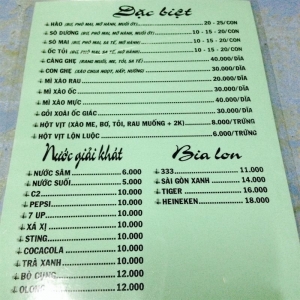 Đặc biệt
HÀO (RÍ, PHÔ MAI, MỠ HÀNH, MUỐI ỚT) 20 - 25/CON
SÒ DƯƠNG (RÍ, PHÔ MAI, MỠ HÀNH, MUỐI ỚT) 10 - 15 - 20/CON
SÒ MAI (RÍ, PHÔ MAI, SA TẾ, MỠ HÀNH) 10 - 15 - 20/CON
ỐC TỎI (RÍ, PHÔ MAI, SA TẾ, MỠ HÀNH) 10 - 15 - 20/CON
CÀNG GHẸ (RANG MUỐI, ME, TỎI, SA TẾ) 40.000/DĨA
CON GHẸ (XÀO CHUA NGỌT, HẤP, NƯỚNG) 30.000/DĨA
MÌ XÀO RAU 20.000/DĨA
MÌ XÀO ỐC 30.000/DĨA
MÌ XÀO MỰC 40.000/DĨA
GỎI XOÀI ỐC GIÁC 30.000/DĨA
HỘT VỊT (XÀO ME, BƠ, TỎI, RAU MUỐNG + 2K) 8.000/TRỨNG
HỘT VỊT LỘN LUỘC 6.000/TRỨNG
Nước giải khát
NƯỚC SÂM 6.000
NƯỚC SUỐI 5.000
C2 10.000
PEPSI 10.000
7 UP 10.000
XÁ XỊ 10.000
STING 10.000
COCACOLA 10.000
TRÀ XANH 10.000
BÒ CỤNG 12.000
OLONG 12.000
Bia lon
333 11.000
SÀI GÒN XANH 14.000
TIGER 16.000
HEINEKEN 18.000